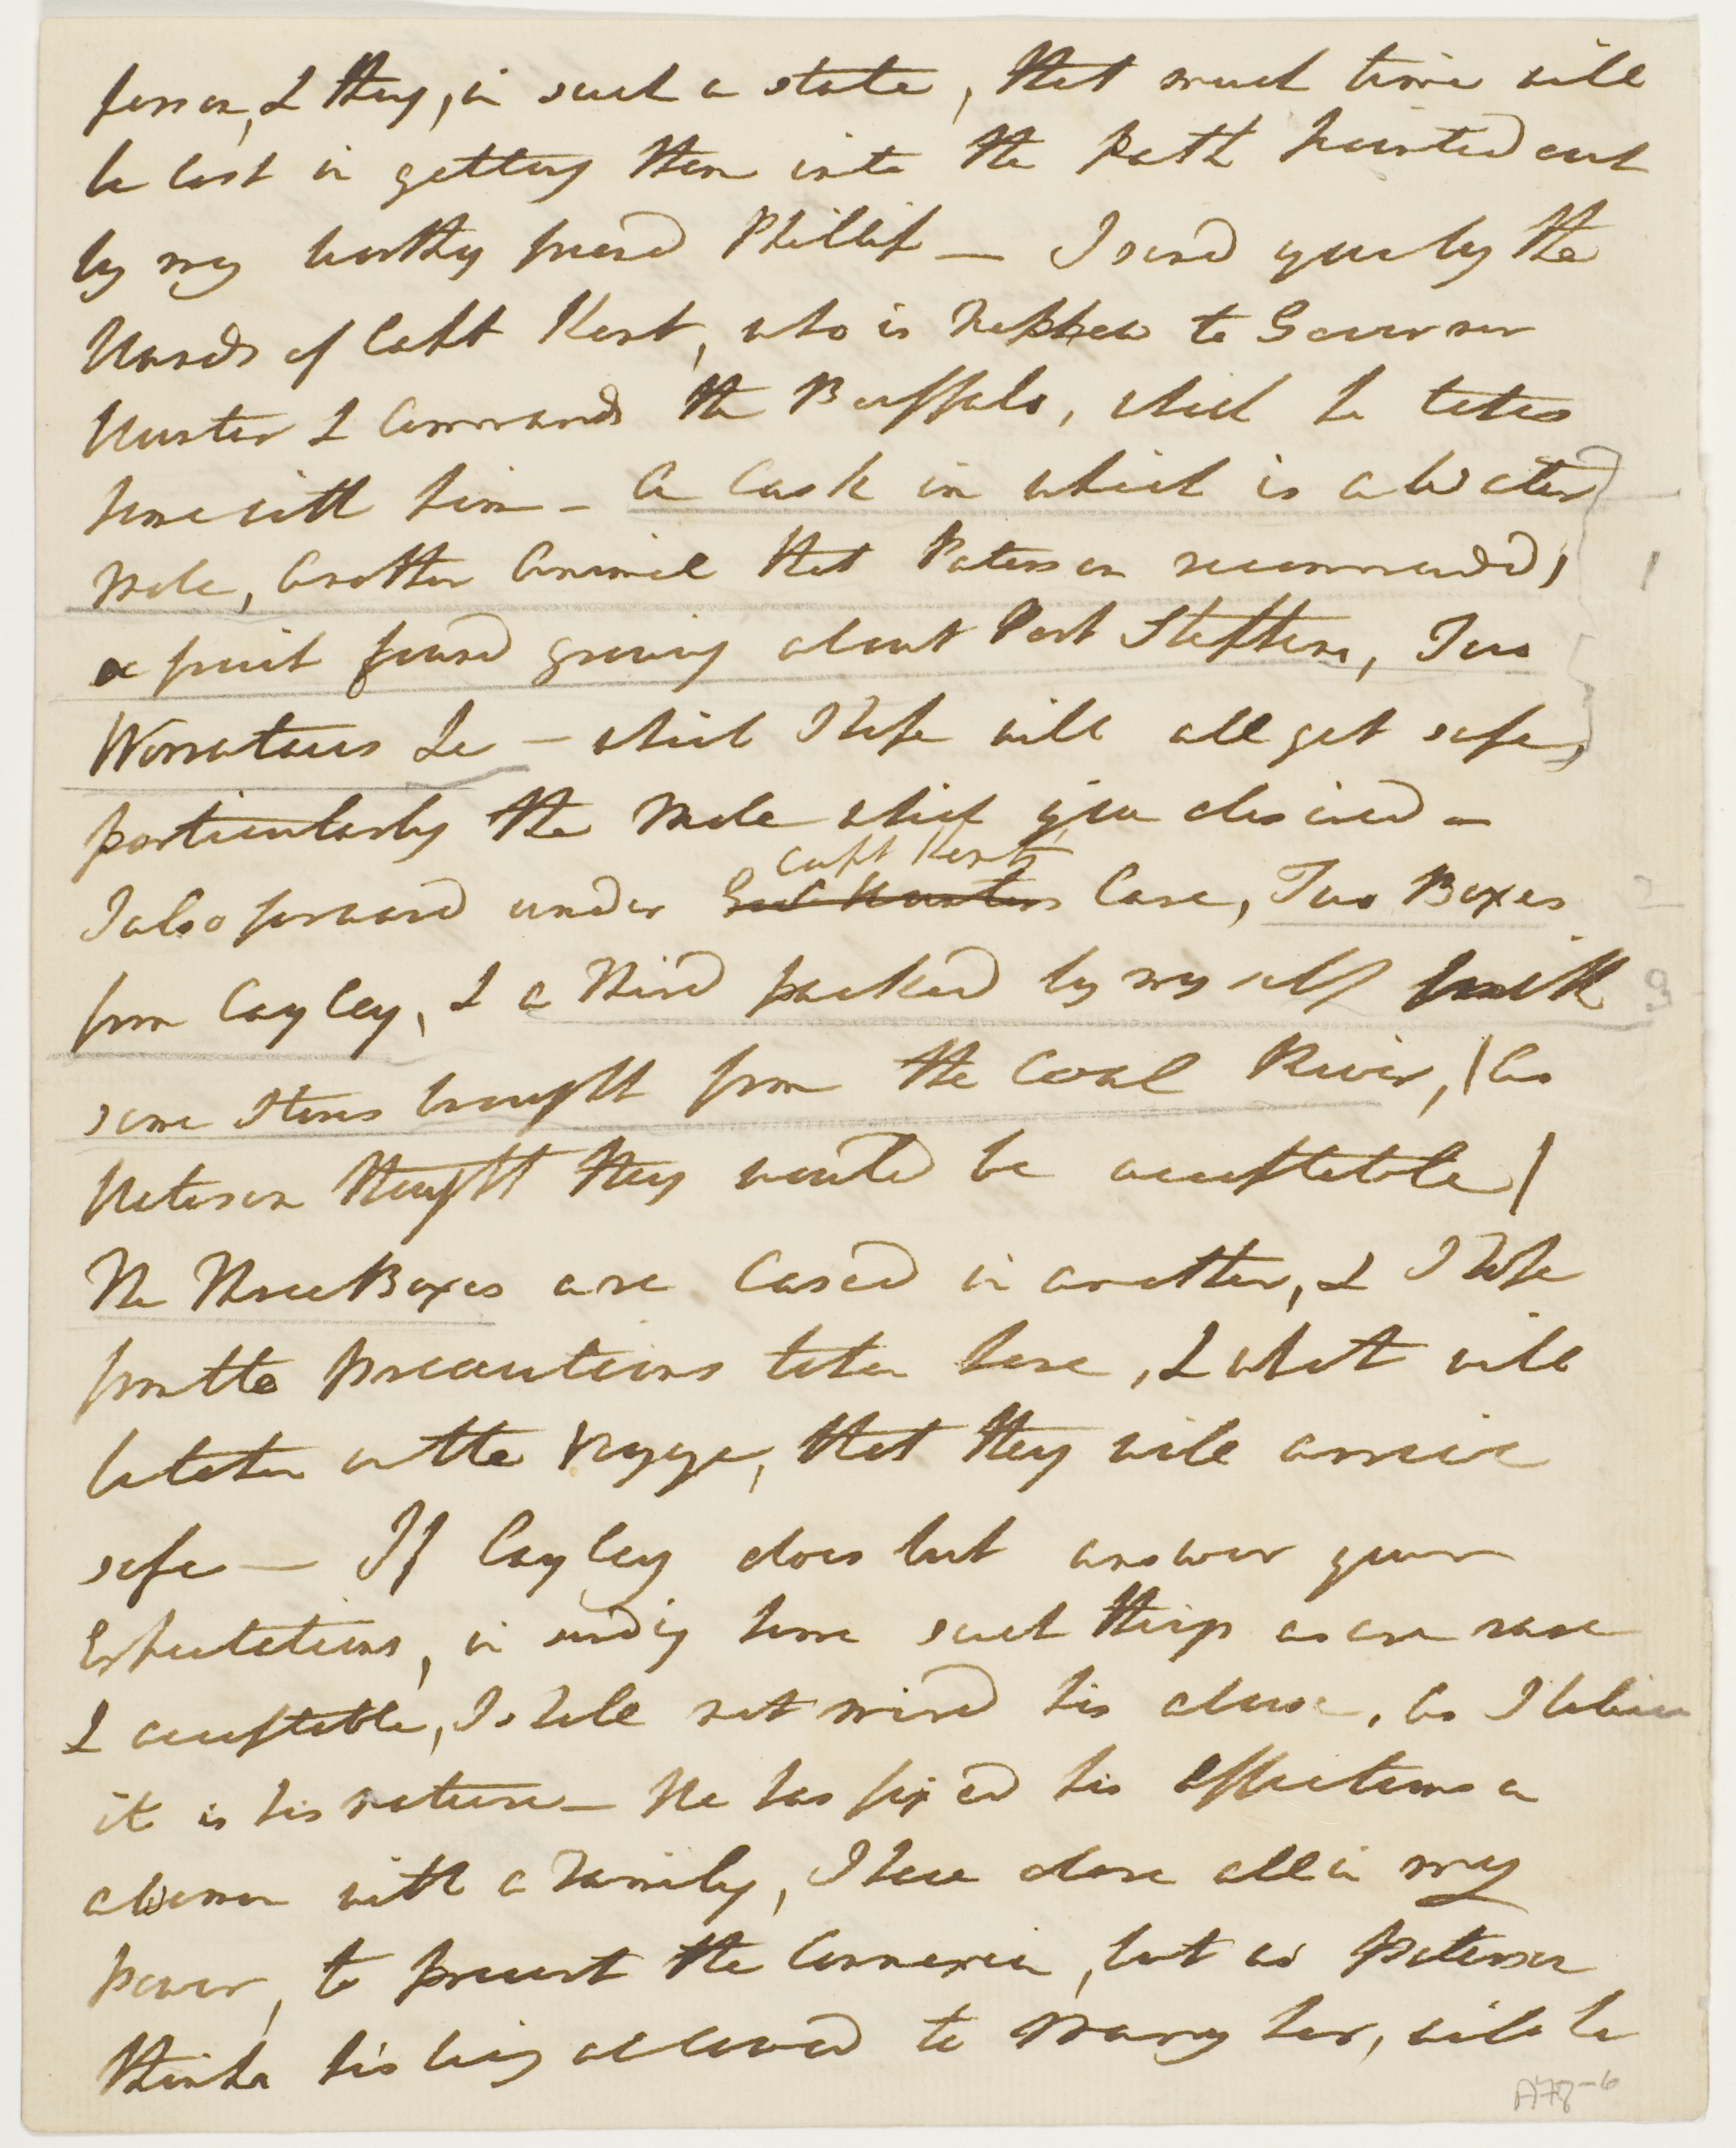 person, & they, in such a state, that much time will
be lost in getting them into the path pointed out
by my worthy friend Phillip — I send you by the
Hands of Capt Kent, who is Nephew to Governor
Hunter & Commands the Buffalo, which he takes
home with him — a Cask in which is a Water
Mole, another Animal that Paterson recommended,
a fruit found growing about Port Stephens, Two
Worrataus &c — which I hope will all get safe,
particularly the Mole which you desired —
Capt Kents
I also forward under Gov. Hunters Care, Two Boxes
from Cayley, & a Third packed by myself with
some Stones brought from the Coal River, (as
Paterson thought they would be acceptable)
The Three Boxes are Cased in another, & I hope
from the precautions taken here, & what will
be taken on the Voyage, that they will arrive
safe — If Cayley does but answer your
Expectations, in sending home such things as are rare
& acceptable, I shall not mind his abuse, as I believe
it is his nature — He has fixed his affections on
a Woman with a Family, I have done all in my
power, to prevent the Connexion, but as Paterson
thinks his being allowed to Marry her, will be
1
2
3
A78-6